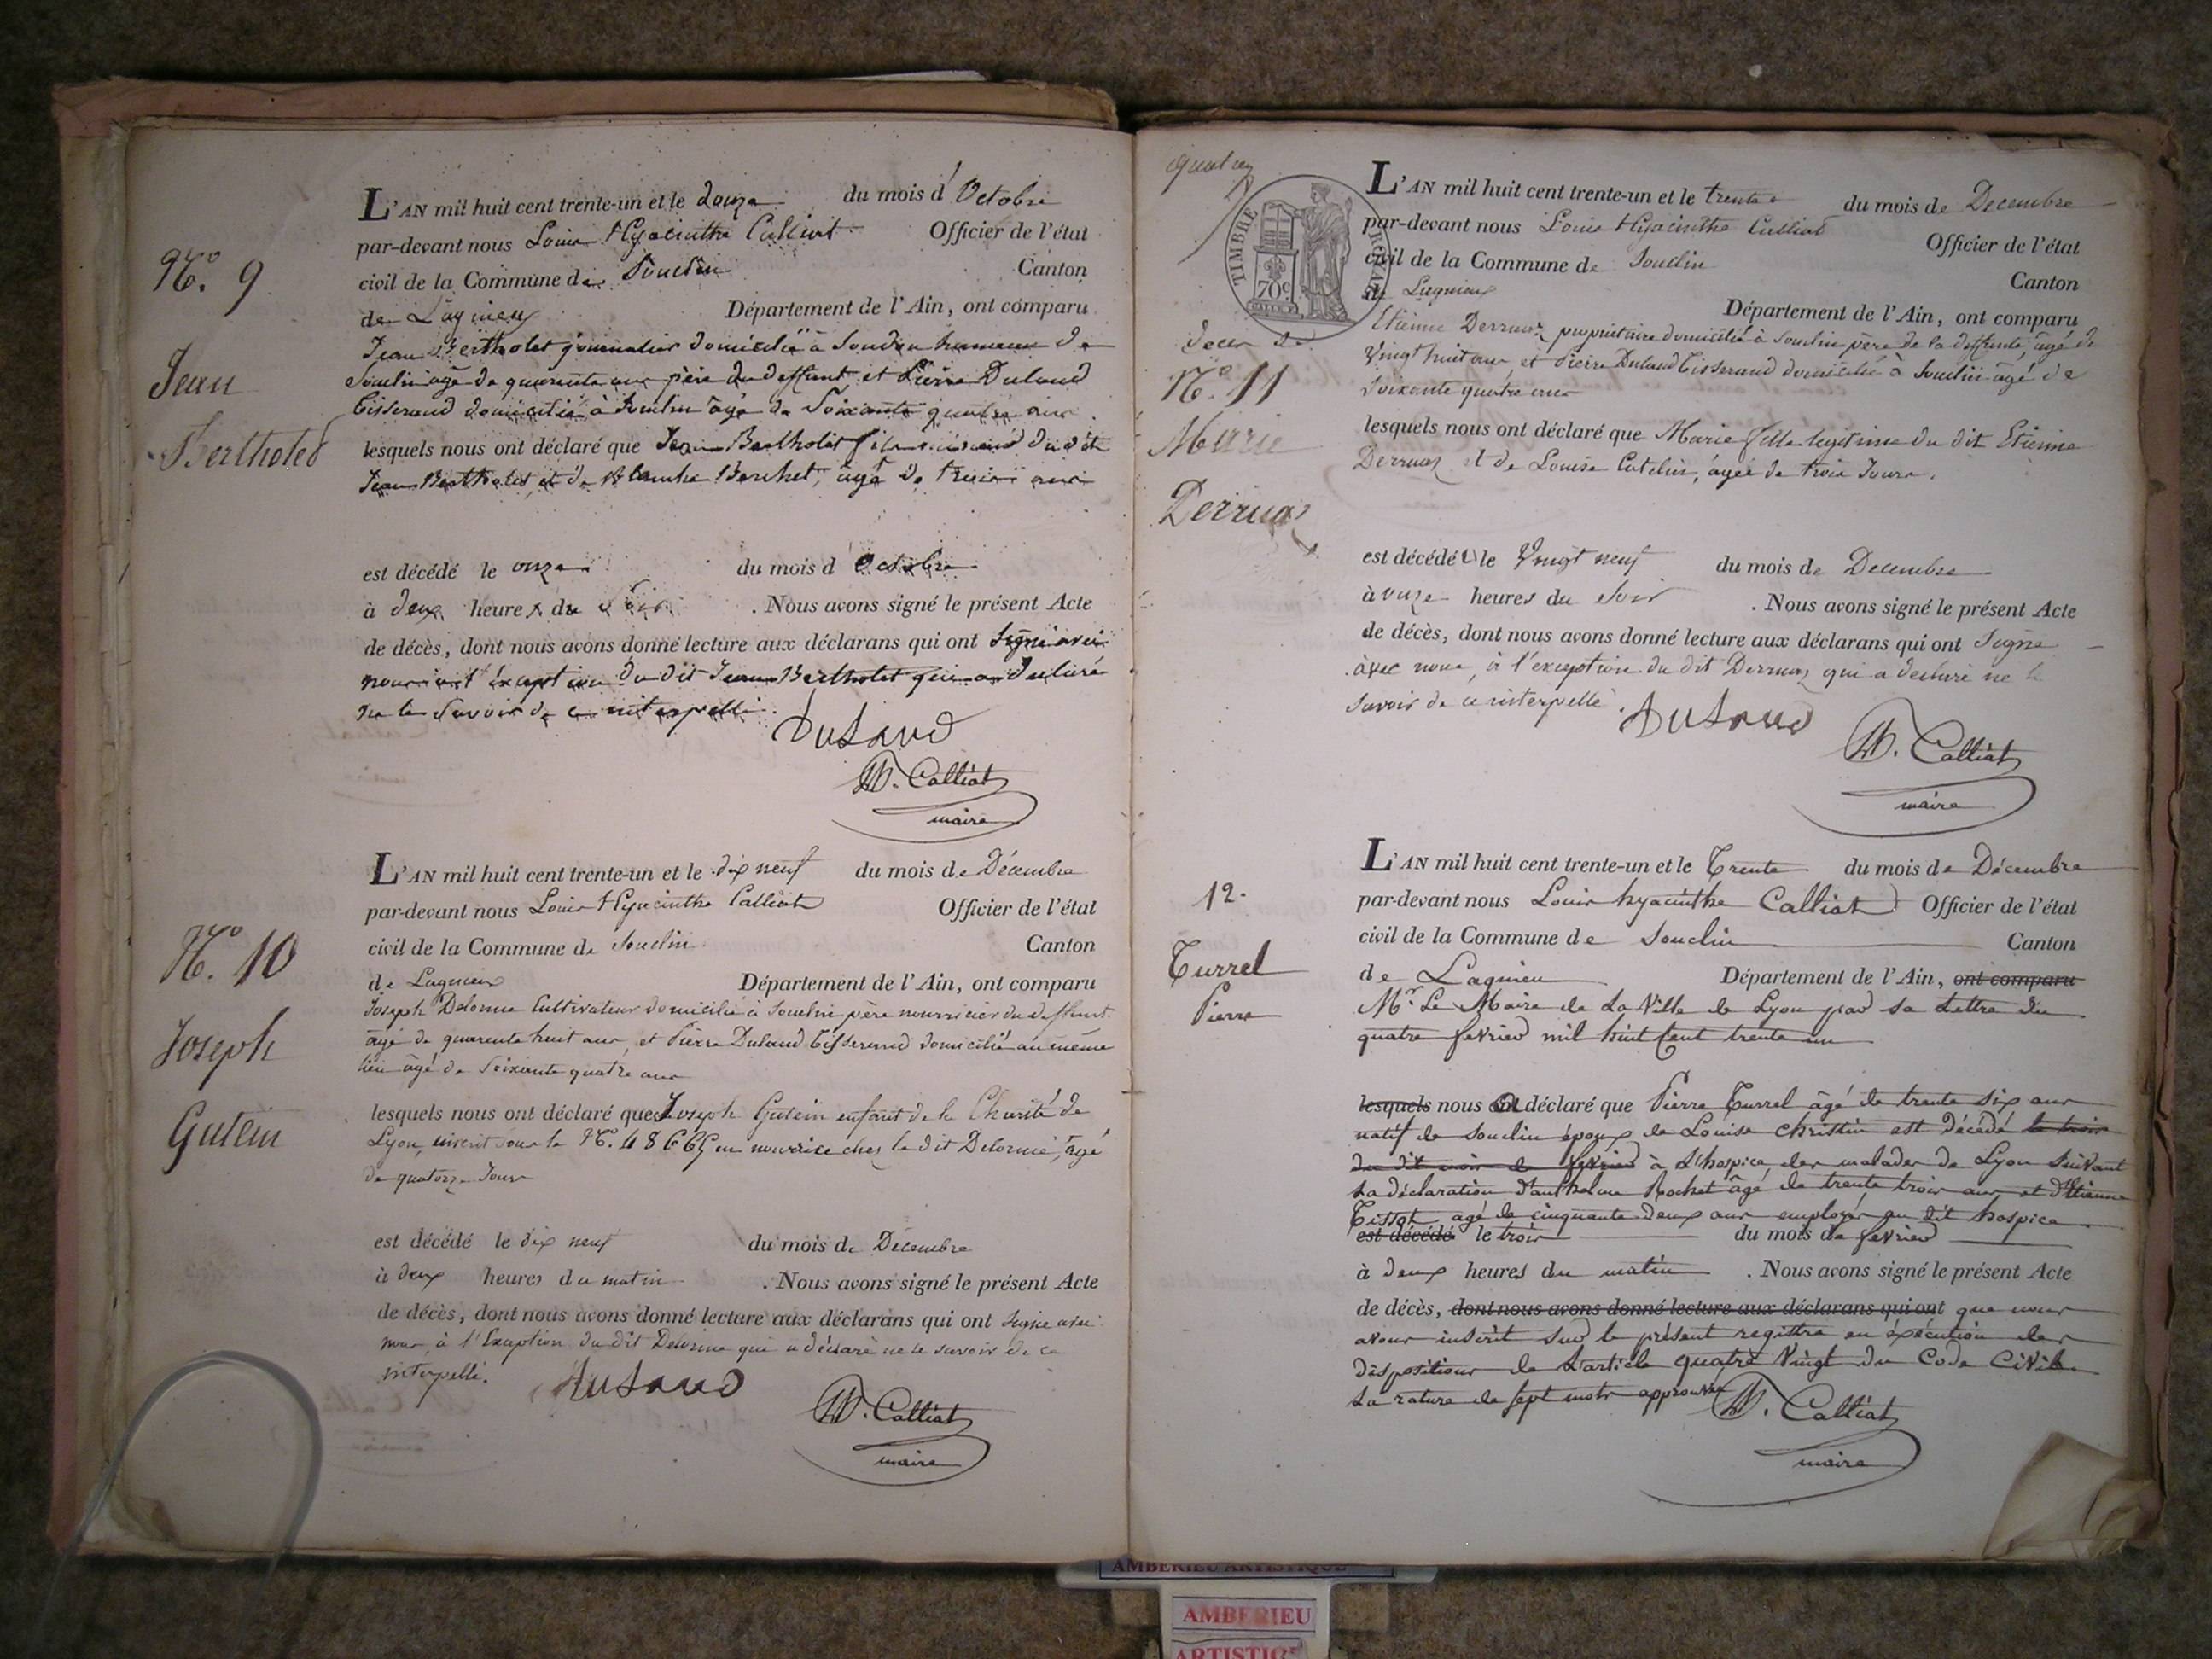 N.º 9
Jean
Bertholet
L'AN mil huit cent trente-un et le douze du mois d'Octobre
par-devant nous Louis Hyacinthe Calliat Officier de l'état
civil de la Commune de Souclin Canton
de Lagnieu Département de l'Ain, ont comparu
Jean Bertholet journalier domicilié à hameau de
Souclin agé de quarante ans père du deffunt, et Pierre Dulaud
tisserand domicilié à Souclin âgé de Soixante quatre ans
lesquels nous ont déclaré que Jean Bertholet fils du dit
Jean Bertholet et de Blanche Berchet, âgé de trois ans
est décédé le onze du mois d'Octobre
à deux heures du Soir . Nous avons signé le présent Acte
de décès, dont nous avons donné lecture aux déclarans qui ont signé avec
nous à l'exception du dit Jean Bertholet qui a déclaré
ne le savoir de ce interpellé.
Dulaud
H. Calliat
maire
N.º 10
Joseph
Gutein
L'AN mil huit cent trente-un et le dix neuf du mois de Décembre
par-devant nous Louis Hyacinthe Calliat Officier de l'état
civil de la Commune de Souclin Canton
de Lagnieu Département de l'Ain, ont comparu
Joseph Delorme Cultivateur domicilié à Souclin père nourricier du deffunt
âgé de quarente huit ans, et Pierre Dulaud Tisserand domicilié au même
lieu âgé de Soixante quatre ans
lesquels nous ont déclaré que Joseph Gutein enfant de la Charité de
Lyon, inscrit sous le N.º en nourrice chez le dit Delorme, âgé
de quatorze Jours
est décédé le dix neuf du mois de Décembre
à deux heures du matin . Nous avons signé le présent Acte
de décès, dont nous avons donné lecture aux déclarans qui ont signé avec
nous, à l'Exception du dit Delorme qui a déclaré ne le savoir de ce
interpellé.
Dulaud
H. Calliat
maire
TIMBRE ROYAL
70c
N.º 11
Marie
Derruaz
L'AN mil huit cent trente-un et le trente du mois de Decembre
par-devant nous Louis Hyacinthe Calliat Officier de l'état
civil de la Commune de Souclin Canton
de Lagnieu Département de l'Ain, ont comparu
Etienne Derruaz propriétaire domicilié à Souclin père de la deffunte, agé de
Vingt huit ans, et Pierre Dulaud Tisserand domicilié à Souclin âgé de
Soixante quatre ans
lesquels nous ont déclaré que Marie fille legitime du dit Etienne
Derruaz et de Louise Catelin, âgée de trois Jours.
est décédée le Vingt neuf du mois de Decembre
à onze heures du Soir . Nous avons signé le présent Acte
de décès, dont nous avons donné lecture aux déclarans qui ont signé
avec nous, à l'exception du dit Derruaz qui a déclaré ne le
savoir de ce interpellé.
Dulaud
H. Calliat
maire
12.
Turrel
Pierre
L'AN mil huit cent trente-un et le Trente du mois de Décembre
par-devant nous Louis hyacinthe Calliat Officier de l'état
civil de la Commune de Souclin Canton
de Lagnieu Département de l'Ain, ont comparu
Mr. Le Maire de La Ville de Lyon par sa Lettre du
quatre fevrier mil huit Cent trente un
lesquels nous a déclaré que Pierre Turrel âgé de trente six ans
natif de Souclin époux de Louise Christin est décédé le trois
du dit mois de fevrier à L'hospice des malades de Lyon Suivant
La déclaration d'anthelme Rochet âgé de trente trois ans et d'Etienne
Tissot agé de cinquante deux ans employés au dit hospice
est décédé le trois du mois de fevrier
à deux heures du matin . Nous avons signé le présent Acte
de décès, dont nous avons donné lecture aux déclarans qui ont que nous
avons inscrit sur le présent registre en éxécution des
dispositions de L'article quatre Vingt du Code Civil.
La rature de sept mots approuvée
H. Calliat
maire
AMBERIEU ARTISTIQUE
AMBERIEU
ARTISTIQUE